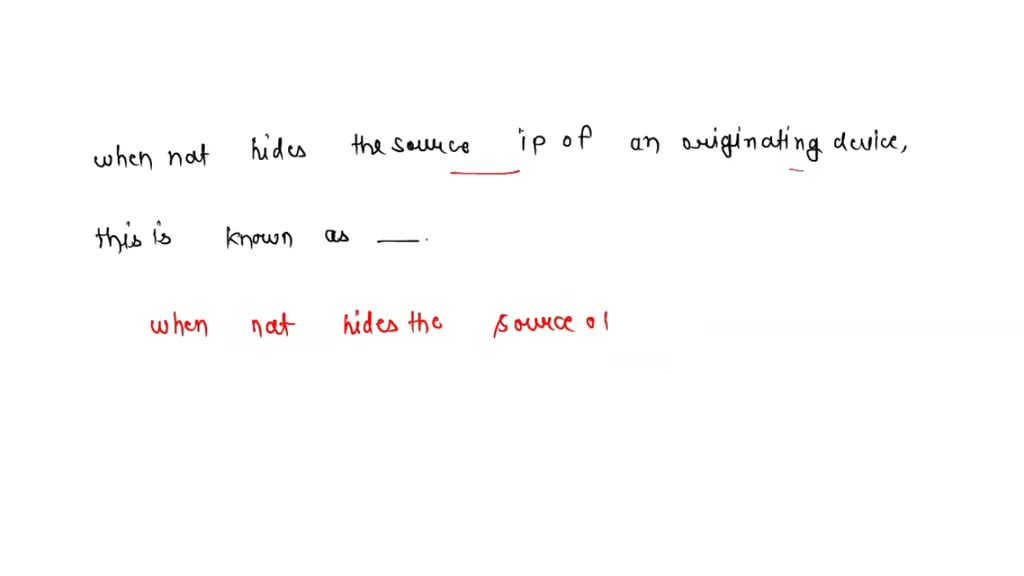 when nat hides the source ip of an originating device,
this is known as —.
when nat hides the source of